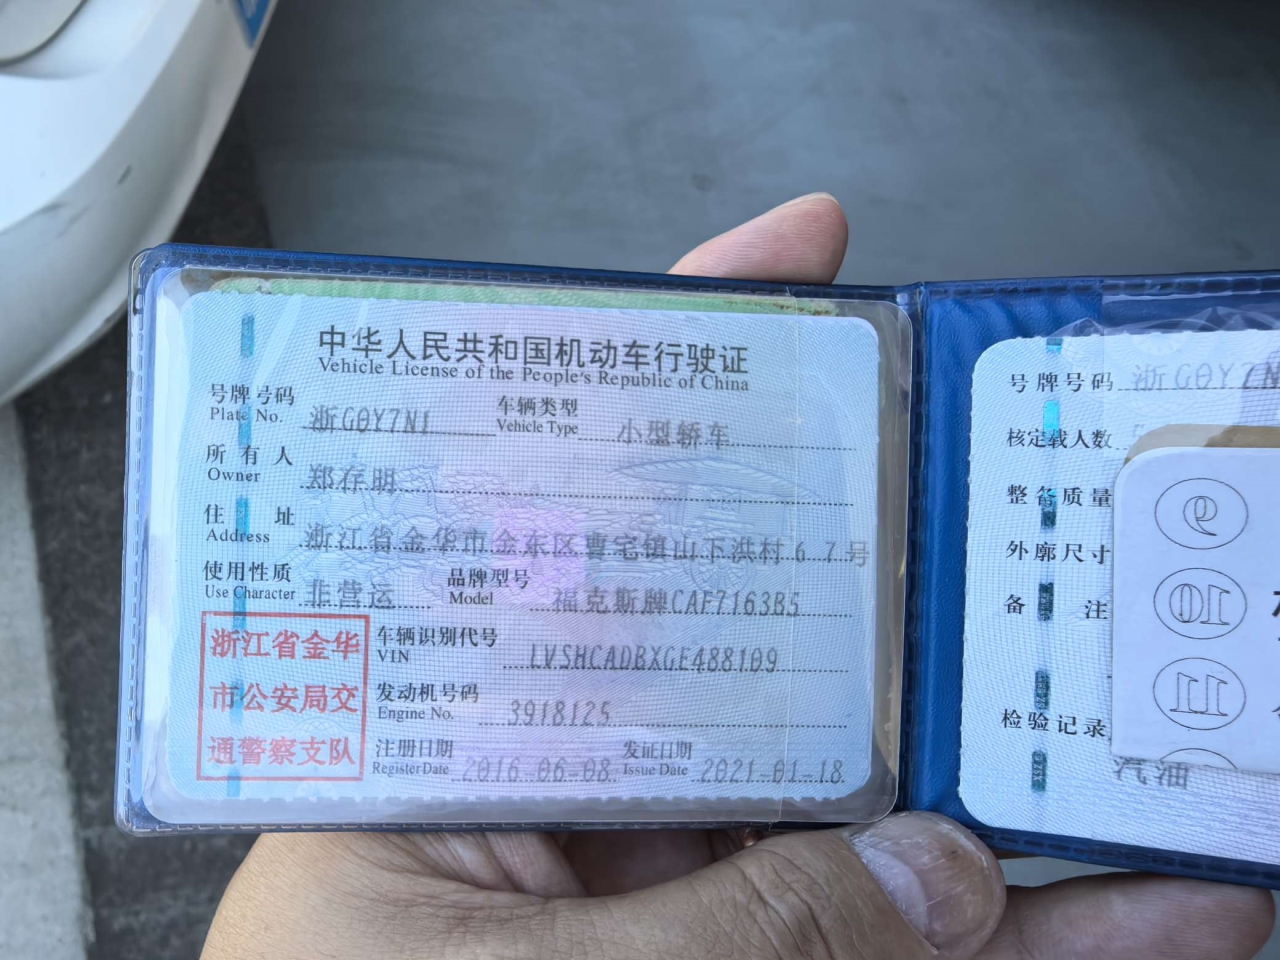 中华人民共和国机动车行驶证
Vehicle License of the People's Republic of China
号牌号码 Plate No. 浙G0Y7N1 车辆类型 Vehicle Type 小型轿车
所有人 Owner 郑存明
住址 Address 浙江省金华市金东区曹宅镇山下洪村67号
使用性质 Use Character 非营运 品牌型号 Model 福克斯牌CAF7163B5
浙江省金华
市公安局交
通警察支队
车辆识别代号 VIN LVSHCADBXGE488109
发动机号码 Engine No. 3918125
注册日期 Register Date 2016-06-08 发证日期 Issue Date 2021-01-18
号牌号码 浙G0Y7N
核定载人数
整备质量
外廓尺寸
备注
检验记录
汽油
9
10
11